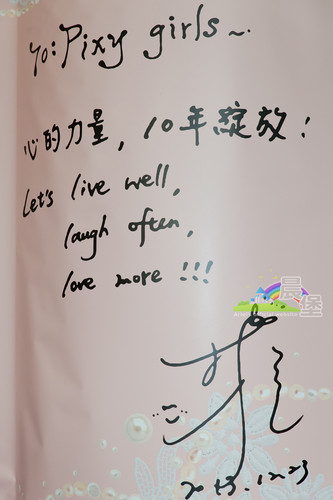 To: Pixy girls~
心的力量，10年绽放！
Let's live well,
laugh often,
love more !!!
晨
堡
2013.12.23